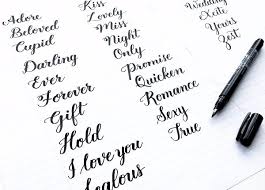 Adore
Beloved
Cupid
Darling
Ever
Forever
Gift
Hold
I love you
Jealous
Kiss
Lovely
Miss
Night
Only
Promise
Quicken
Romance
Sexy
True
Wedding
Yours